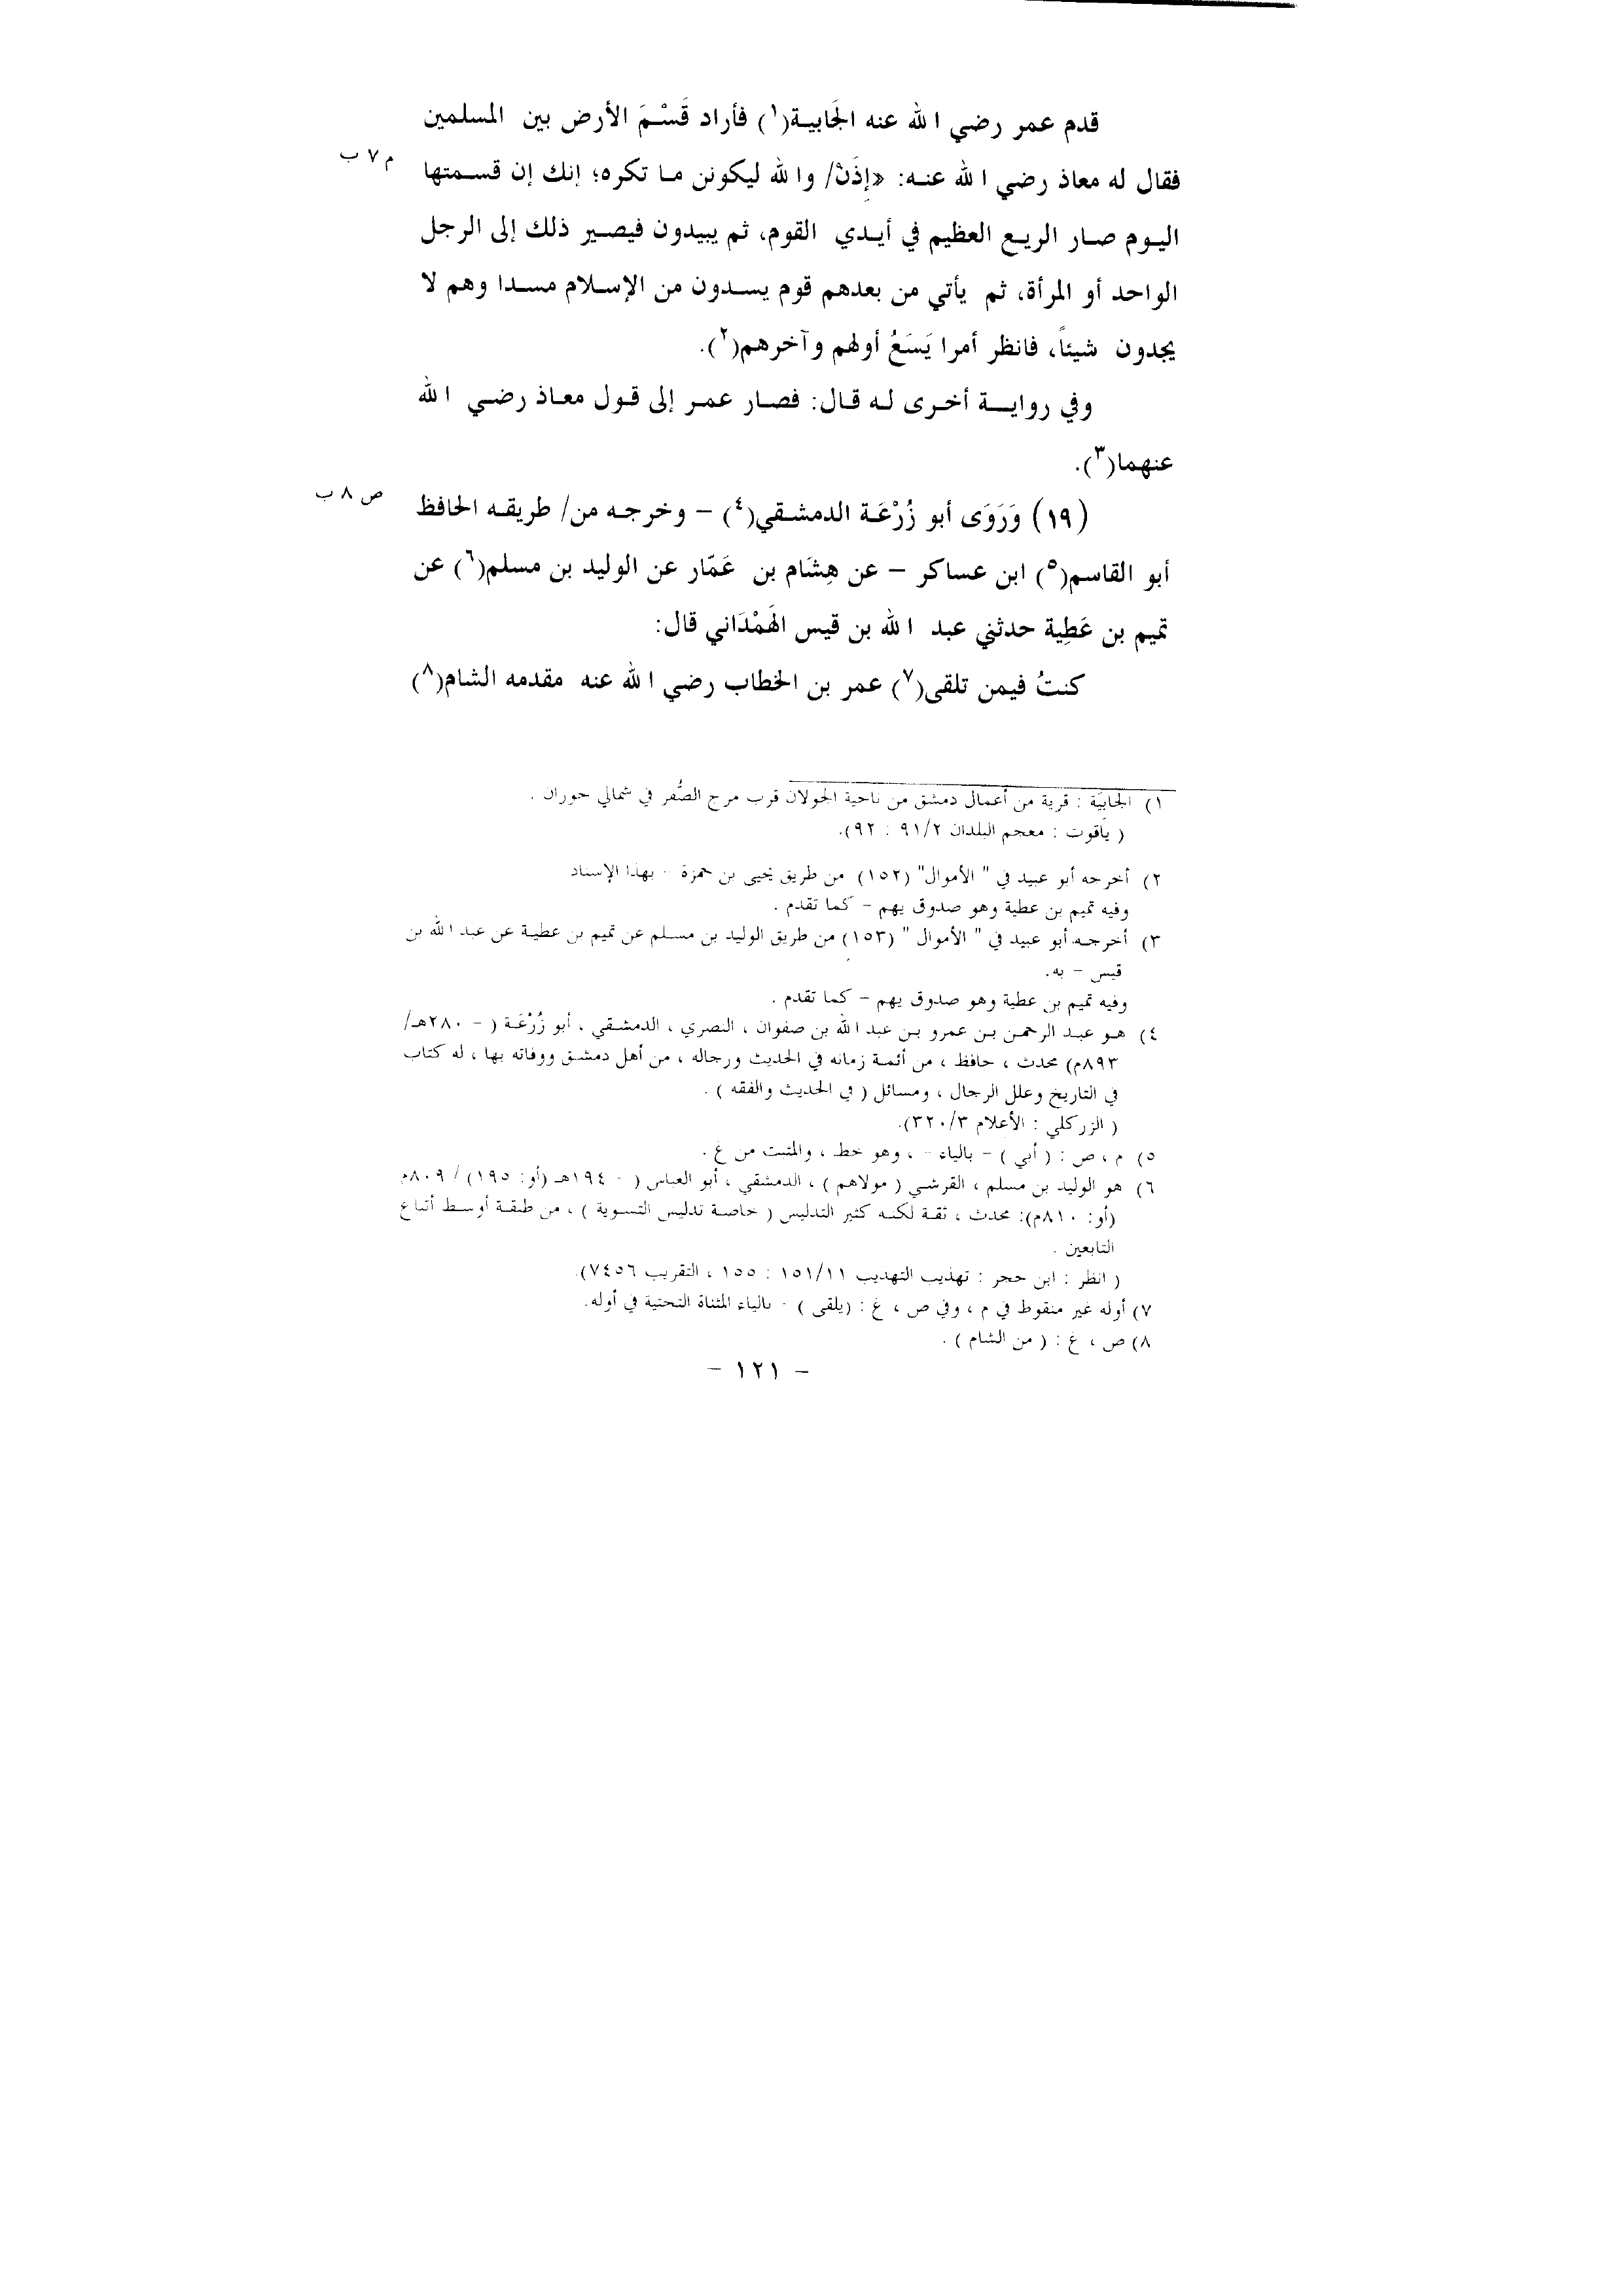 قدم عمر رضي الله عنه الجَابية(١) فأراد قَسْمَ الأرض بين المسلمين
م ٧ ب
فقال له معاذ رضي الله عنه: «إِذَنْ/ والله ليكونن ما تكره؛ إنك إن قسمتها
اليوم صار الريع العظيم في أيدي القوم، ثم يبيدون فيصير ذلك إلى الرجل
الواحد أو المرأة، ثم يأتي من بعدهم قوم يسدون من الإسلام مسدا وهم لا
يجدون شيئاً، فانظر أمرا يَسَعُ أولهم وآخرهم(٢).
وفي رواية أخرى له قال: فصار عمر إلى قول معاذ رضي الله
عنهما(٣).
ص ٨ ب
(١٩) وَرَوَى أبو زُرْعَة الدمشقي(٤) – وخرجه من/ طريقه الحافظ
أبو القاسم(٥) ابن عساكر – عن هِشَام بن عَمّار عن الوليد بن مسلم(٦) عن
تميم بن عَطِية حدثني عبد الله بن قيس الهَمْدَاني قال:
كنتُ فيمن تلقى(٧) عمر بن الخطاب رضي الله عنه مقدمه الشام(٨)
١) الجَابِيَة : قرية من أعمال دمشق من ناحية الجولان قرب مرج الصُّفر في شمالي حوران .
( ياقوت : معجم البلدان ٩١/٢ : ٩٢).
٢) أخرجه أبو عبيد في " الأموال" (١٥٢) من طريق يحيى بن حمزة - بهذا الإسناد
وفيه تميم بن عطية وهو صدوق يهم – كما تقدم .
٣) أخرجه أبو عبيد في " الأموال " (١٥٣) من طريق الوليد بن مسلم عن تميم بن عطية عن عبد الله بن
قيس – به.
وفيه تميم بن عطية وهو صدوق يهم – كما تقدم .
٤) هو عبد الرحمن بن عمرو بن عبد الله بن صفوان ، النصري ، الدمشقي ، أبو زُرْعَة ( – ٢٨٠هـ/
٨٩٣م) محدث ، حافظ ، من أئمة زمانه في الحديث ورجاله ، من أهل دمشق ووفاته بها ، له كتاب
في التاريخ وعلل الرجال ، ومسائل ( في الحديث والفقه ) .
( الزركلي : الأعلام ٣٢٠/٣).
٥) م ، ص : ( أبي ) – بالياء - ، وهو خط ، والمثبت من غ .
٦) هو الوليد بن مسلم ، القرشي ( مولاهم ) ، الدمشقي ، أبو العباس ( - ١٩٤هـ (أو: ١٩٥) / ٨٠٩م
(أو: ٨١٠م): محدث ، ثقة لكنه كثير التدليس ( خاصة تدليس التسوية ) ، من طبقة أوسط أتباع
التابعين .
( انظر : ابن حجر : تهذيب التهذيب ١٥١/١١ : ١٥٥ ، التقريب ٧٤٥٦).
٧) أوله غير منقوط في م ، وفي ص ، غ : (يلقى ) - بالياء المثناة التحتية في أوله.
٨) ص ، غ : ( من الشام ) .
– ١٢١ –